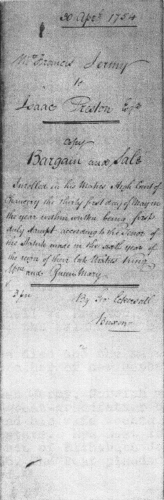 30 Apr: 1754
Mr Francis Jermy
to
Isaac Preston Esqr
Copy
Bargain and Sale
Inrolled in his Majties High Court of
Chancery the thirty first day of May in
the year within written being first
duly Stampt according to the Tenor of
the Statute made in the sixth year of
the reign of their late Majties King
Wm and Queen Mary.